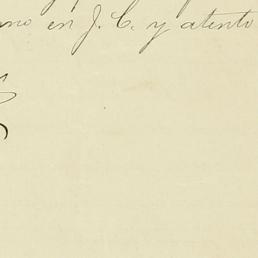 en J. C. y atento